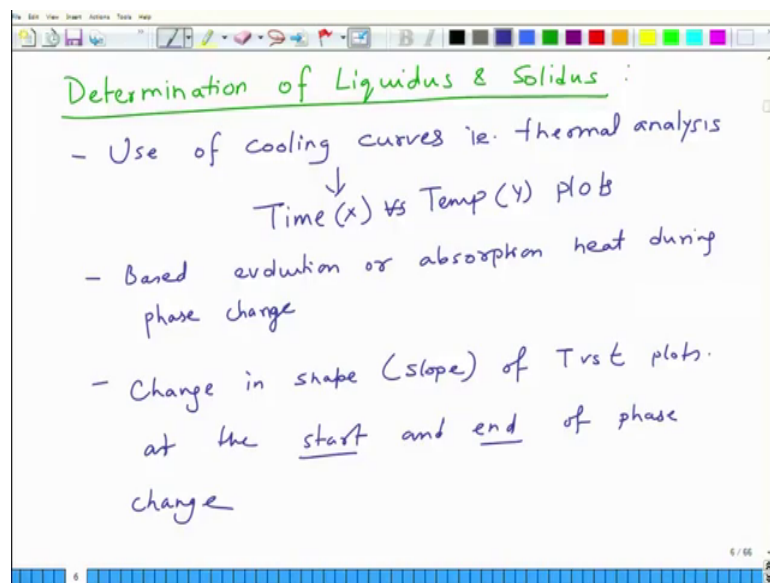 File Edit View Insert Actions Tools Help
Determination of Liquidus & Solidus :
- Use of cooling curves ie. thermal analysis
↓
Time (x) vs Temp (y) plots
- Based evolution or absorption heat during
phase change
- Change in shape (slope) of T vs t plots.
at the start and end of phase
change
6 / 66
6